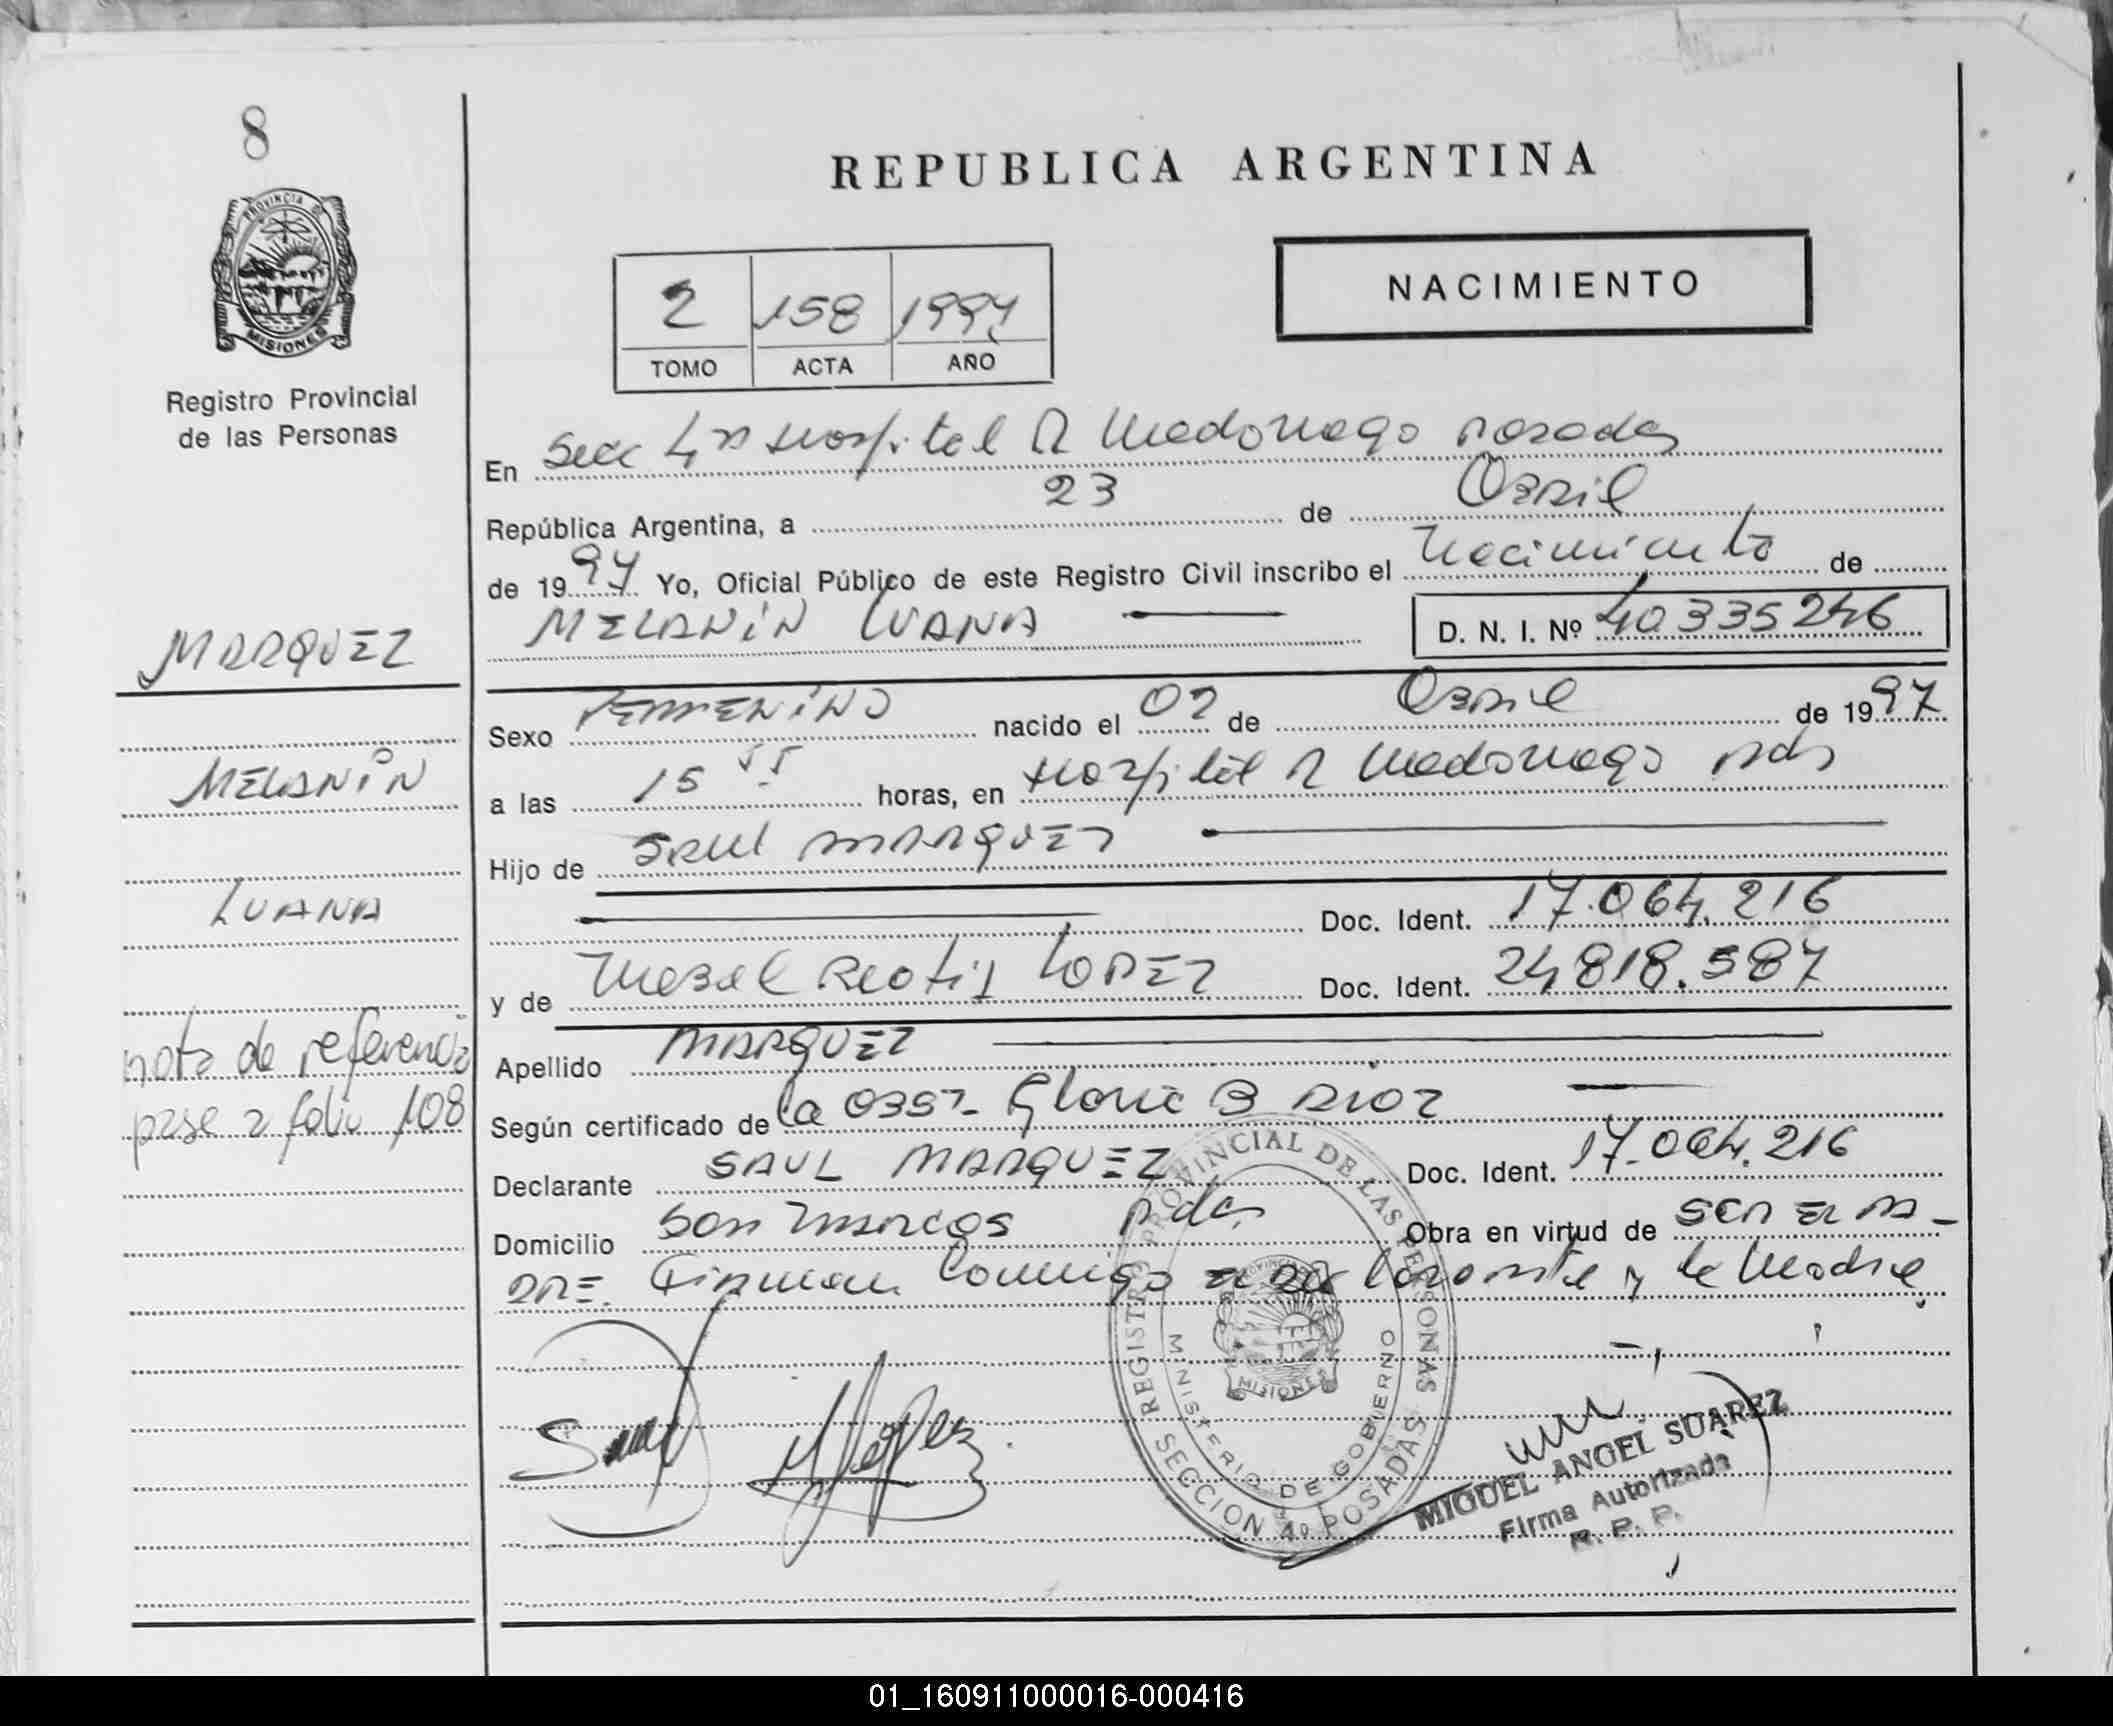 8
REPUBLICA ARGENTINA
PROVINCIA D
MISIONES
Registro Provincial
de las Personas
NACIMIENTO
2 158 1997
TOMO ACTA AÑO
En Secc 4ª Hospital R Madariaga Posadas
República Argentina, a 23 de Abril
de 1997 Yo, Oficial Público de este Registro Civil inscribo el Nacimiento de
MELANIN LUANA D. N. I. Nº 40335246
MARQUEZ
Sexo FEMENINO nacido el 02 de Abril de 1997
MELANIN
a las 15 horas, en Hospital R Madariaga Pdas
Hijo de SAUL MARQUEZ
LUANA
Doc. Ident. 17.064.216
y de LOPEZ Doc. Ident. 24818.587
nota de referencia
pase a folio 108
Apellido MARQUEZ
Según certificado de la OBST. Gloria B
Declarante SAUL MARQUEZ Doc. Ident. 17.064.216
Domicilio San Marcos Pdas Obra en virtud de SER EL PA-
DRE. Firman Conmigo el declarante y la Madre
REGISTRO PROVINCIAL DE LAS PERSONAS
MINISTERIO DE GOBIERNO
MISIONES
SECCION 4º POSADAS
Saul
MLopez
MIGUEL ANGEL SUAREZ
Firma Autorizada
R. P. P.
01_160911000016-000416